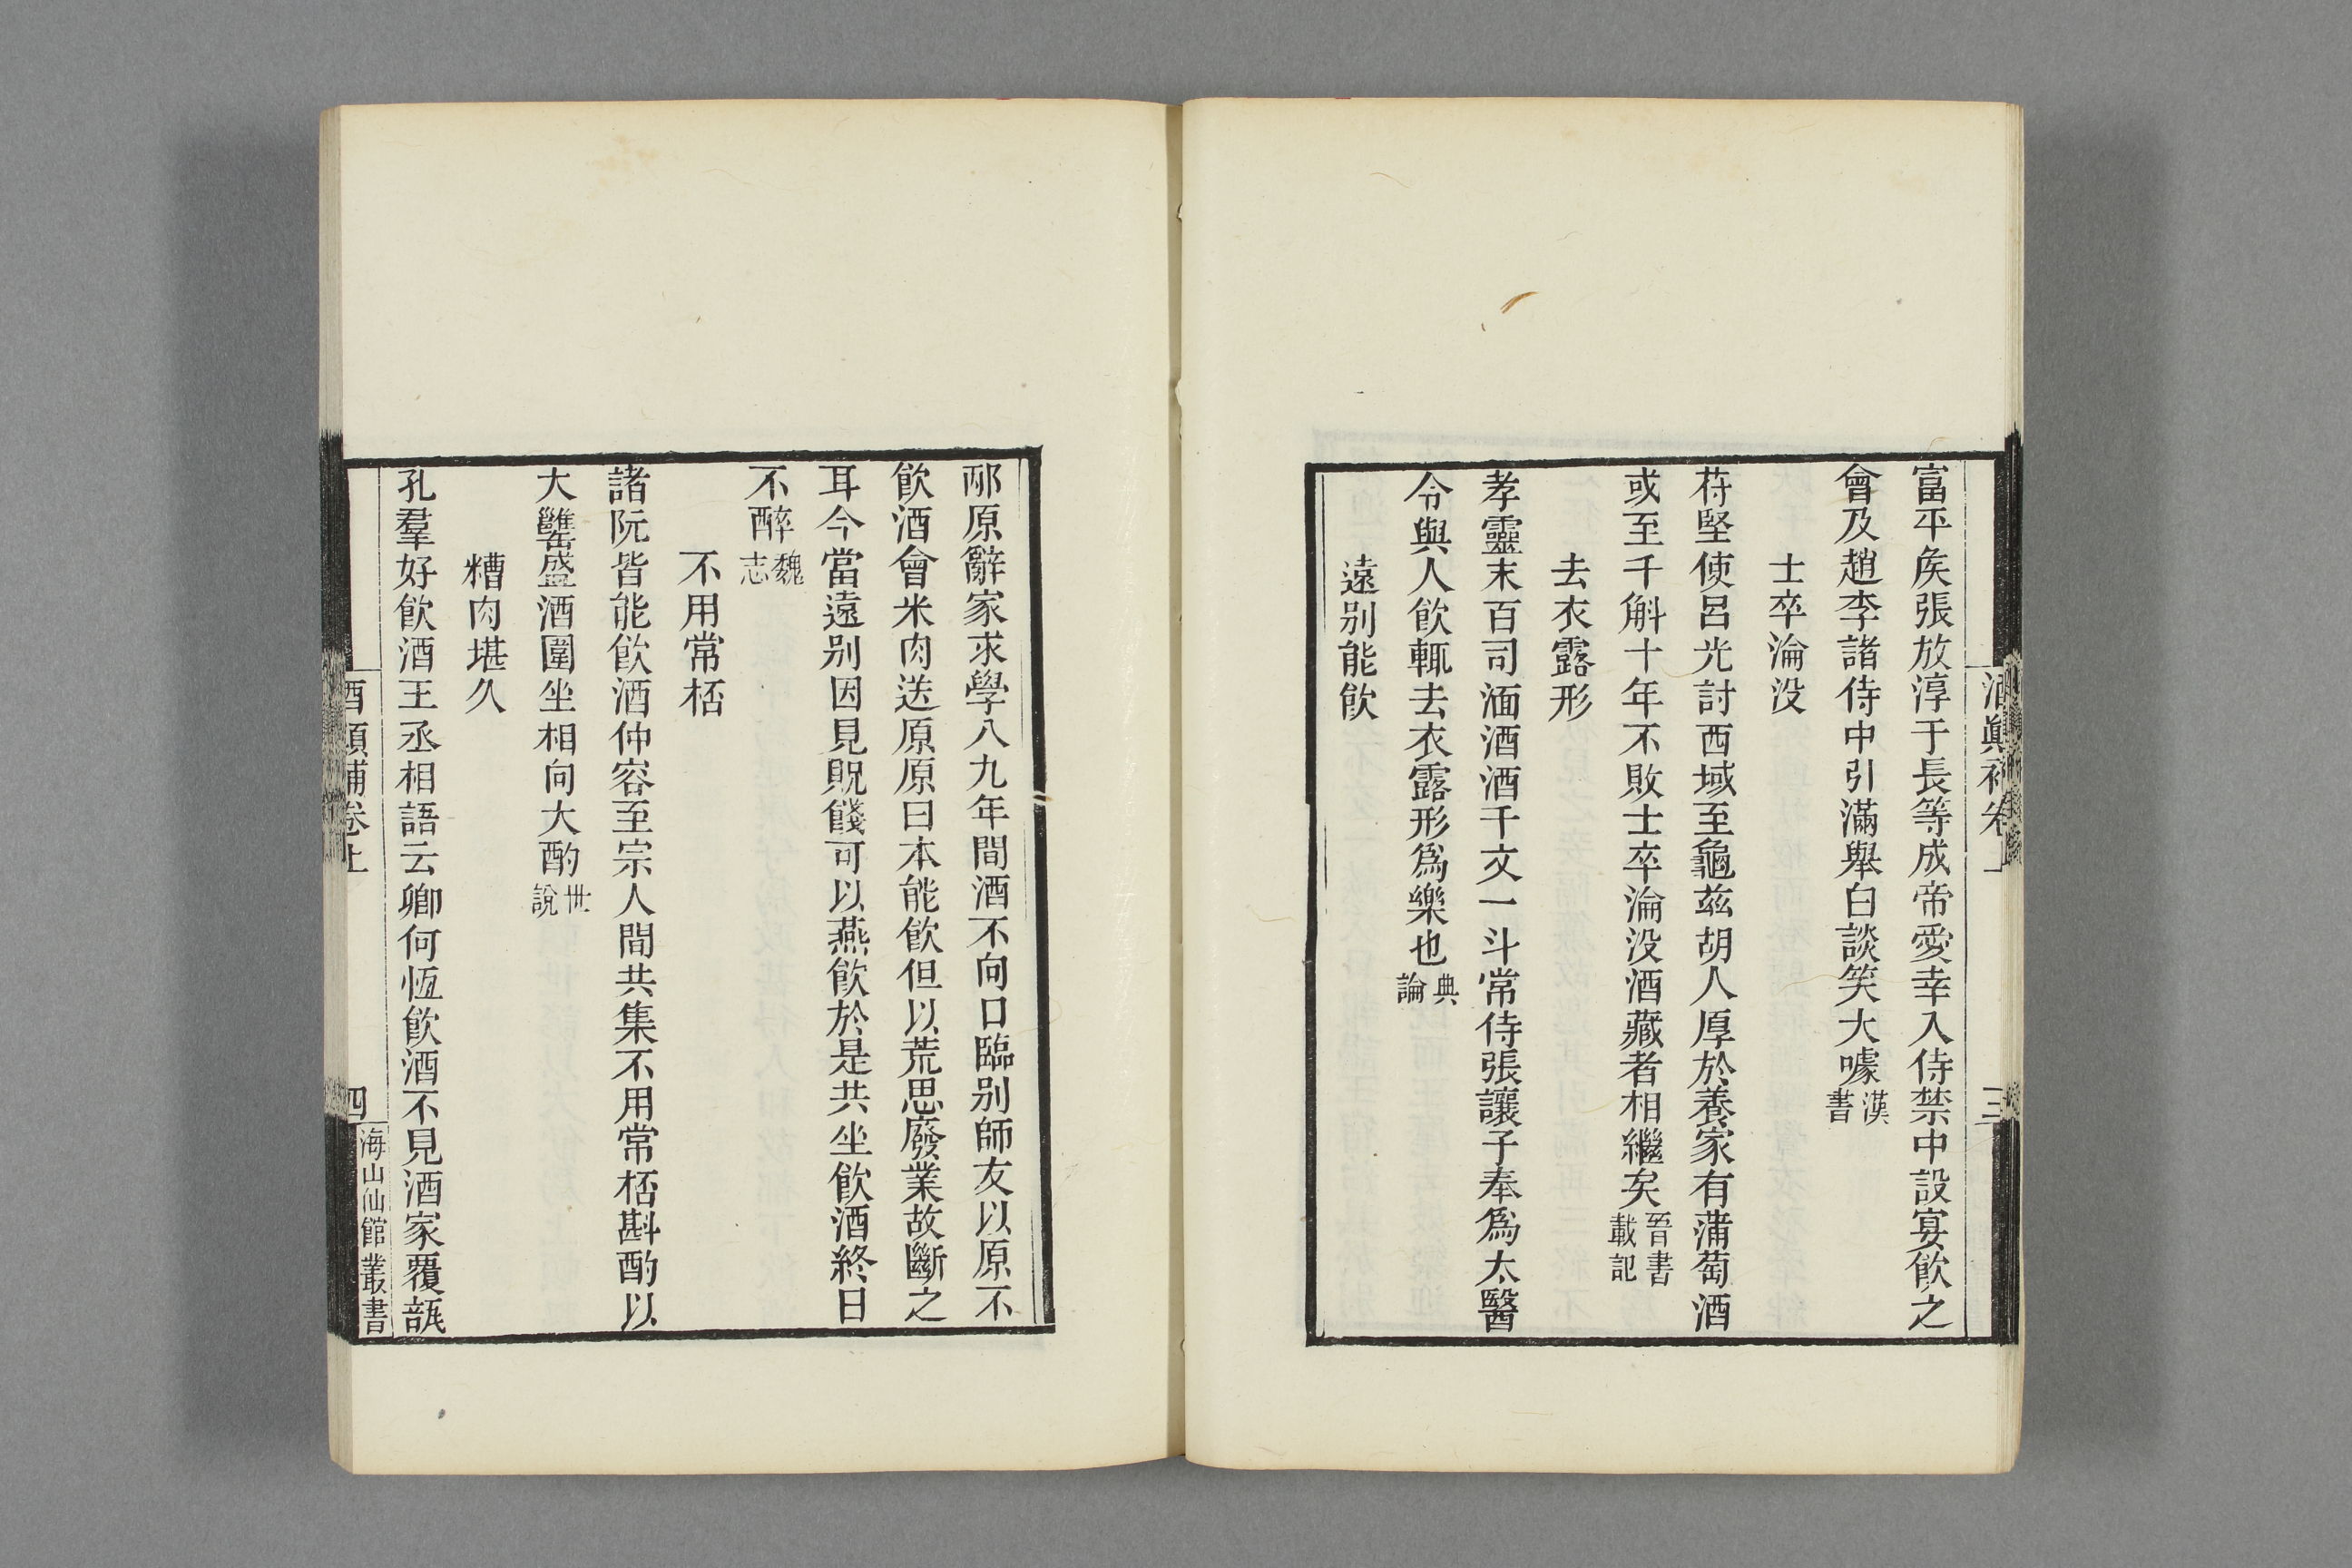 富平矦張放淳于長等成帝愛幸入侍禁中設宴飮之
會及趙李諸侍中引滿舉白談笑大噱漢書
士卒淪没
苻堅使呂光討西域至龜兹胡人厚於養家有蒲萄酒
或至千斛十年不敗士卒淪没酒藏者相繼矣晉書載記
去衣露形
孝靈末百司湎酒酒千文一斗常侍張讓子奉爲太醫
令與人飮輒去衣露形爲樂也典論
遠别能飮
邴原辭家求學八九年間酒不向口臨别師友以原不
飮酒會米肉送原原曰本能飮但以荒思廢業故斷之
耳今當遠别因見貺餞可以燕飮於是共坐飮酒終日
不醉魏志
不用常桮
諸阮皆能飮酒仲容至宗人間共集不用常桮斟酌以
大甕盛酒圍坐相向大酌世說
糟肉堪久
孔羣好飮酒王丞相語云卿何恆飮酒不見酒家覆瓿
酒顚補卷上
四
海山仙館叢書